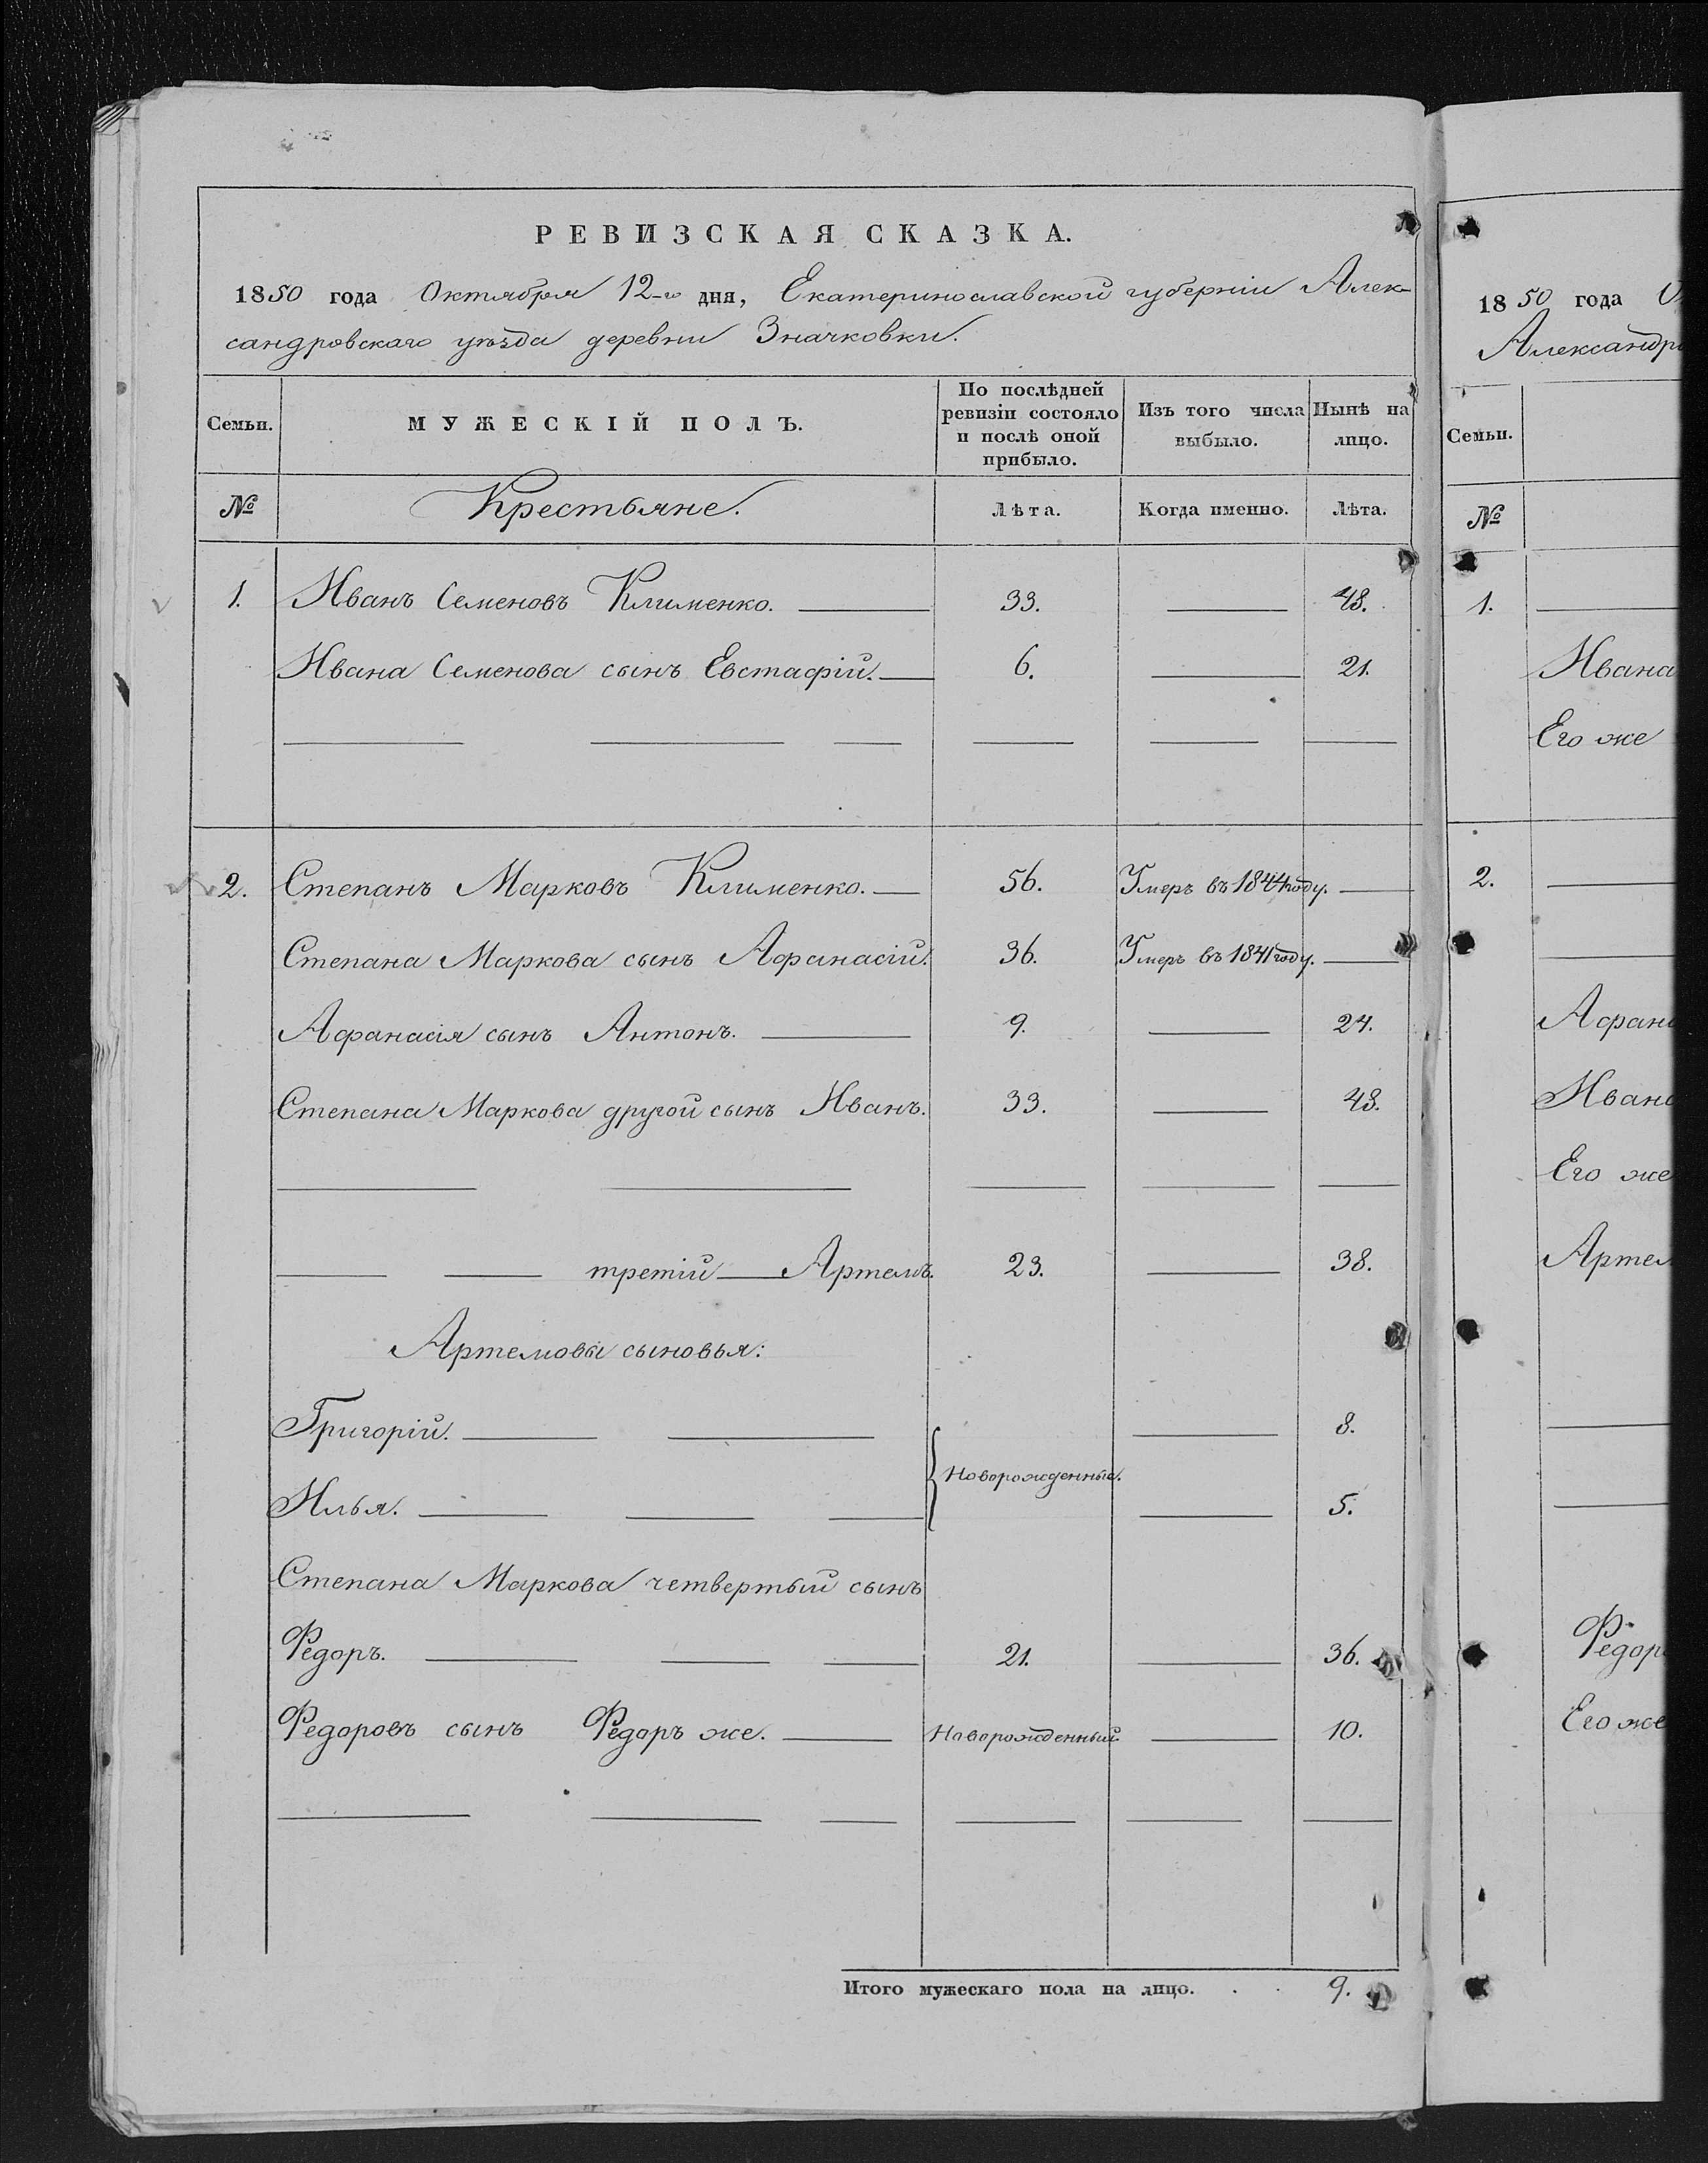 РЕВИЗСКАЯ СКАЗКА.
1850 года Октября 12-го дня, Екатеринославской губерніи Алек-
сандровскаго уѣзда деревни Значковки.
Семьи. МУЖЕСКІЙ ПОЛЪ. По послѣдней ревизіи состояло и послѣ оной прибыло. Изъ того числа выбыло. Нынѣ на лицо.
№ Крестьяне. Лѣта. Когда именно. Лѣта.
1. Иванъ Семеновъ Клименко. 33. 48.
Ивана Семенова сынъ Евстафій. 6. 21.
2. Степанъ Марковъ Клименко. 56. Умеръ въ 1844 году.
Степана Маркова сынъ Афанасій. 36. Умеръ въ 1841 году.
Афанасія сынъ Антонъ. 9. 24.
Степана Маркова другой сынъ Иванъ. 33. 48.
третій Артемъ. 23. 38.
Артемовы сыновья:
Григорій. 8.
Новорожденные.
Илья. 5.
Степана Маркова четвертый сынъ
Федоръ. 21. 36.
Федоровъ сынъ Федоръ же. Новорожденный. 10.
Итого мужескаго пола на лицо. . . 9.
1850 года
Александро
Семьи.
№
1.
Ивана
Его же
2.
Афана
Ивана
Его же
Артем
Федор
Его же